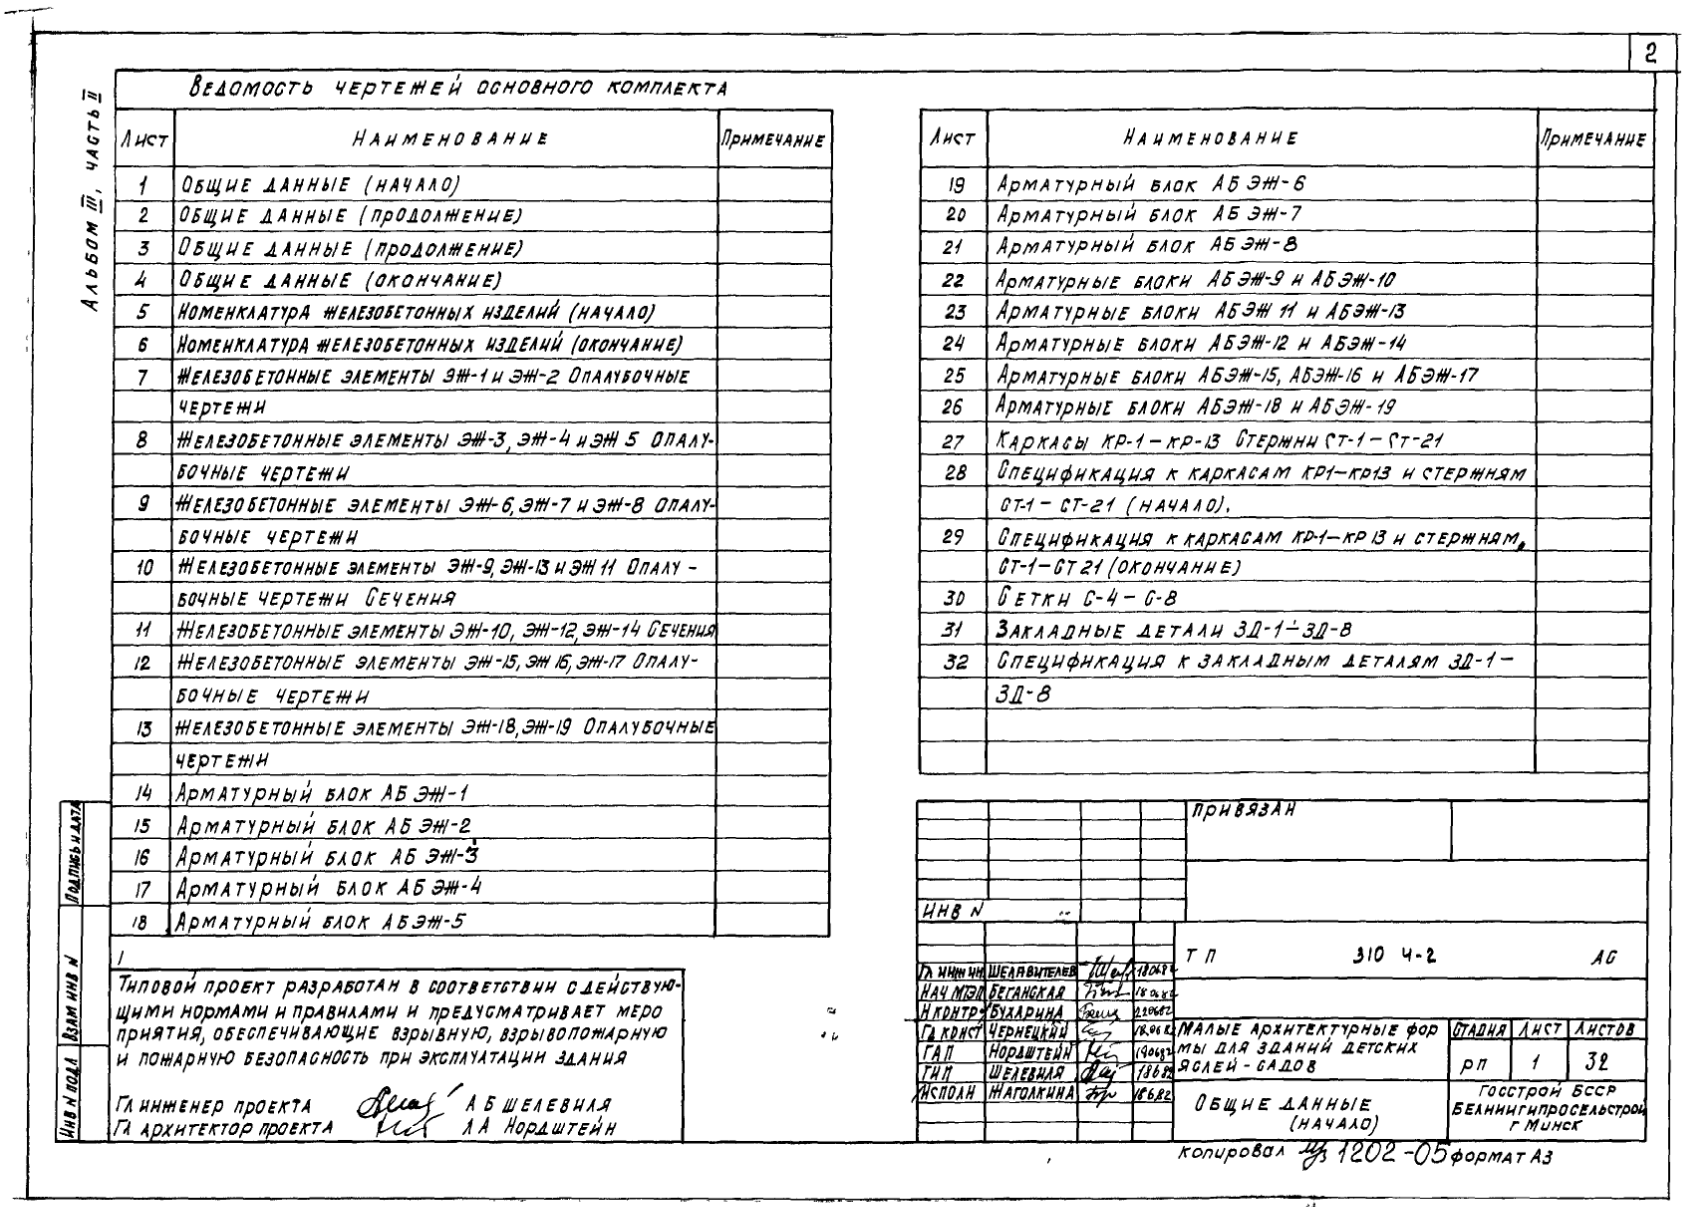 2
Альбом III, часть II
Ведомость чертежей основного комплекта
Лист Наименование Примечание
1 Общие данные (начало)
2 Общие данные (продолжение)
3 Общие данные (продолжение)
4 Общие данные (окончание)
5 Номенклатура железобетонных изделий (начало)
6 Номенклатура железобетонных изделий (окончание)
7 Железобетонные элементы ЭЖ-1 и ЭЖ-2 Опалубочные
чертежи
8 Железобетонные элементы ЭЖ-3, ЭЖ-4 и ЭЖ 5 Опалу-
бочные чертежи
9 Железобетонные элементы ЭЖ-6, ЭЖ-7 и ЭЖ-8 Опалу-
бочные чертежи
10 Железобетонные элементы ЭЖ-9, ЭЖ-13 и ЭЖ 11 Опалу-
бочные чертежи Сечения
11 Железобетонные элементы ЭЖ-10, ЭЖ-12, ЭЖ-14 Сечения
12 Железобетонные элементы ЭЖ-15, ЭЖ 16, ЭЖ-17 Опалу-
бочные чертежи
13 Железобетонные элементы ЭЖ-18, ЭЖ-19 Опалубочные
чертежи
14 Арматурный блок АБ ЭЖ-1
15 Арматурный блок АБ ЭЖ-2
16 Арматурный блок АБ ЭЖ-3
17 Арматурный блок АБ ЭЖ-4
18 Арматурный блок АБЭЖ-5
Лист Наименование Примечание
19 Арматурный блок АБ ЭЖ-6
20 Арматурный блок АБ ЭЖ-7
21 Арматурный блок АБ ЭЖ-8
22 Арматурные блоки АБЭЖ-9 и АБЭЖ-10
23 Арматурные блоки АБЭЖ 11 и АБЭЖ-13
24 Арматурные блоки АБЭЖ-12 и АБЭЖ-14
25 Арматурные блоки АБЭЖ-15, АБЭЖ-16 и АБЭЖ-17
26 Арматурные блоки АБЭЖ-18 и АБЭЖ-19
27 Каркасы КР-1 – КР-13 Стержни СТ-1 – СТ-21
28 Спецификация к каркасам КР1–КР13 и стержням
СТ-1 – СТ-21 (начало).
29 Спецификация к каркасам КР-1–КР 13 и стержням,
СТ-1–СТ 21 (окончание)
30 Сетки С-4 – С-8
31 Закладные детали ЗД-1–ЗД-8
32 Спецификация к закладным деталям ЗД-1 –
ЗД-8
Подпись и дата
Взам инв N
Инв N подл
Типовой проект разработан в соответствии с действую-
щими нормами и правилами и предусматривает меро
приятия, обеспечивающие взрывную, взрывопожарную
и пожарную безопасность при эксплуатации здания
Гл инженер проекта А Б Шелевиля
Гл архитектор проекта Л А Нордштейн
Привязан
Инв N
Гл инжин 180682
Нач МТЭП Беганская 180682
Н контр Бухарина 220682
Гл конст Чернецкий 18.0682
ГАП Нордштейн 190682
ГИП Шелевиля 18682
Исполн Жаголкина 18682
Т П 310 Ч-2 АС
Малые архитектурные фор
мы для зданий детских
яслей-садов
Стадия Лист Листов
РП 1 32
Общие данные
(начало)
Госстрой БССР
Белниигипросельстрой
г Минск
Копировал 1202-05 формат А3